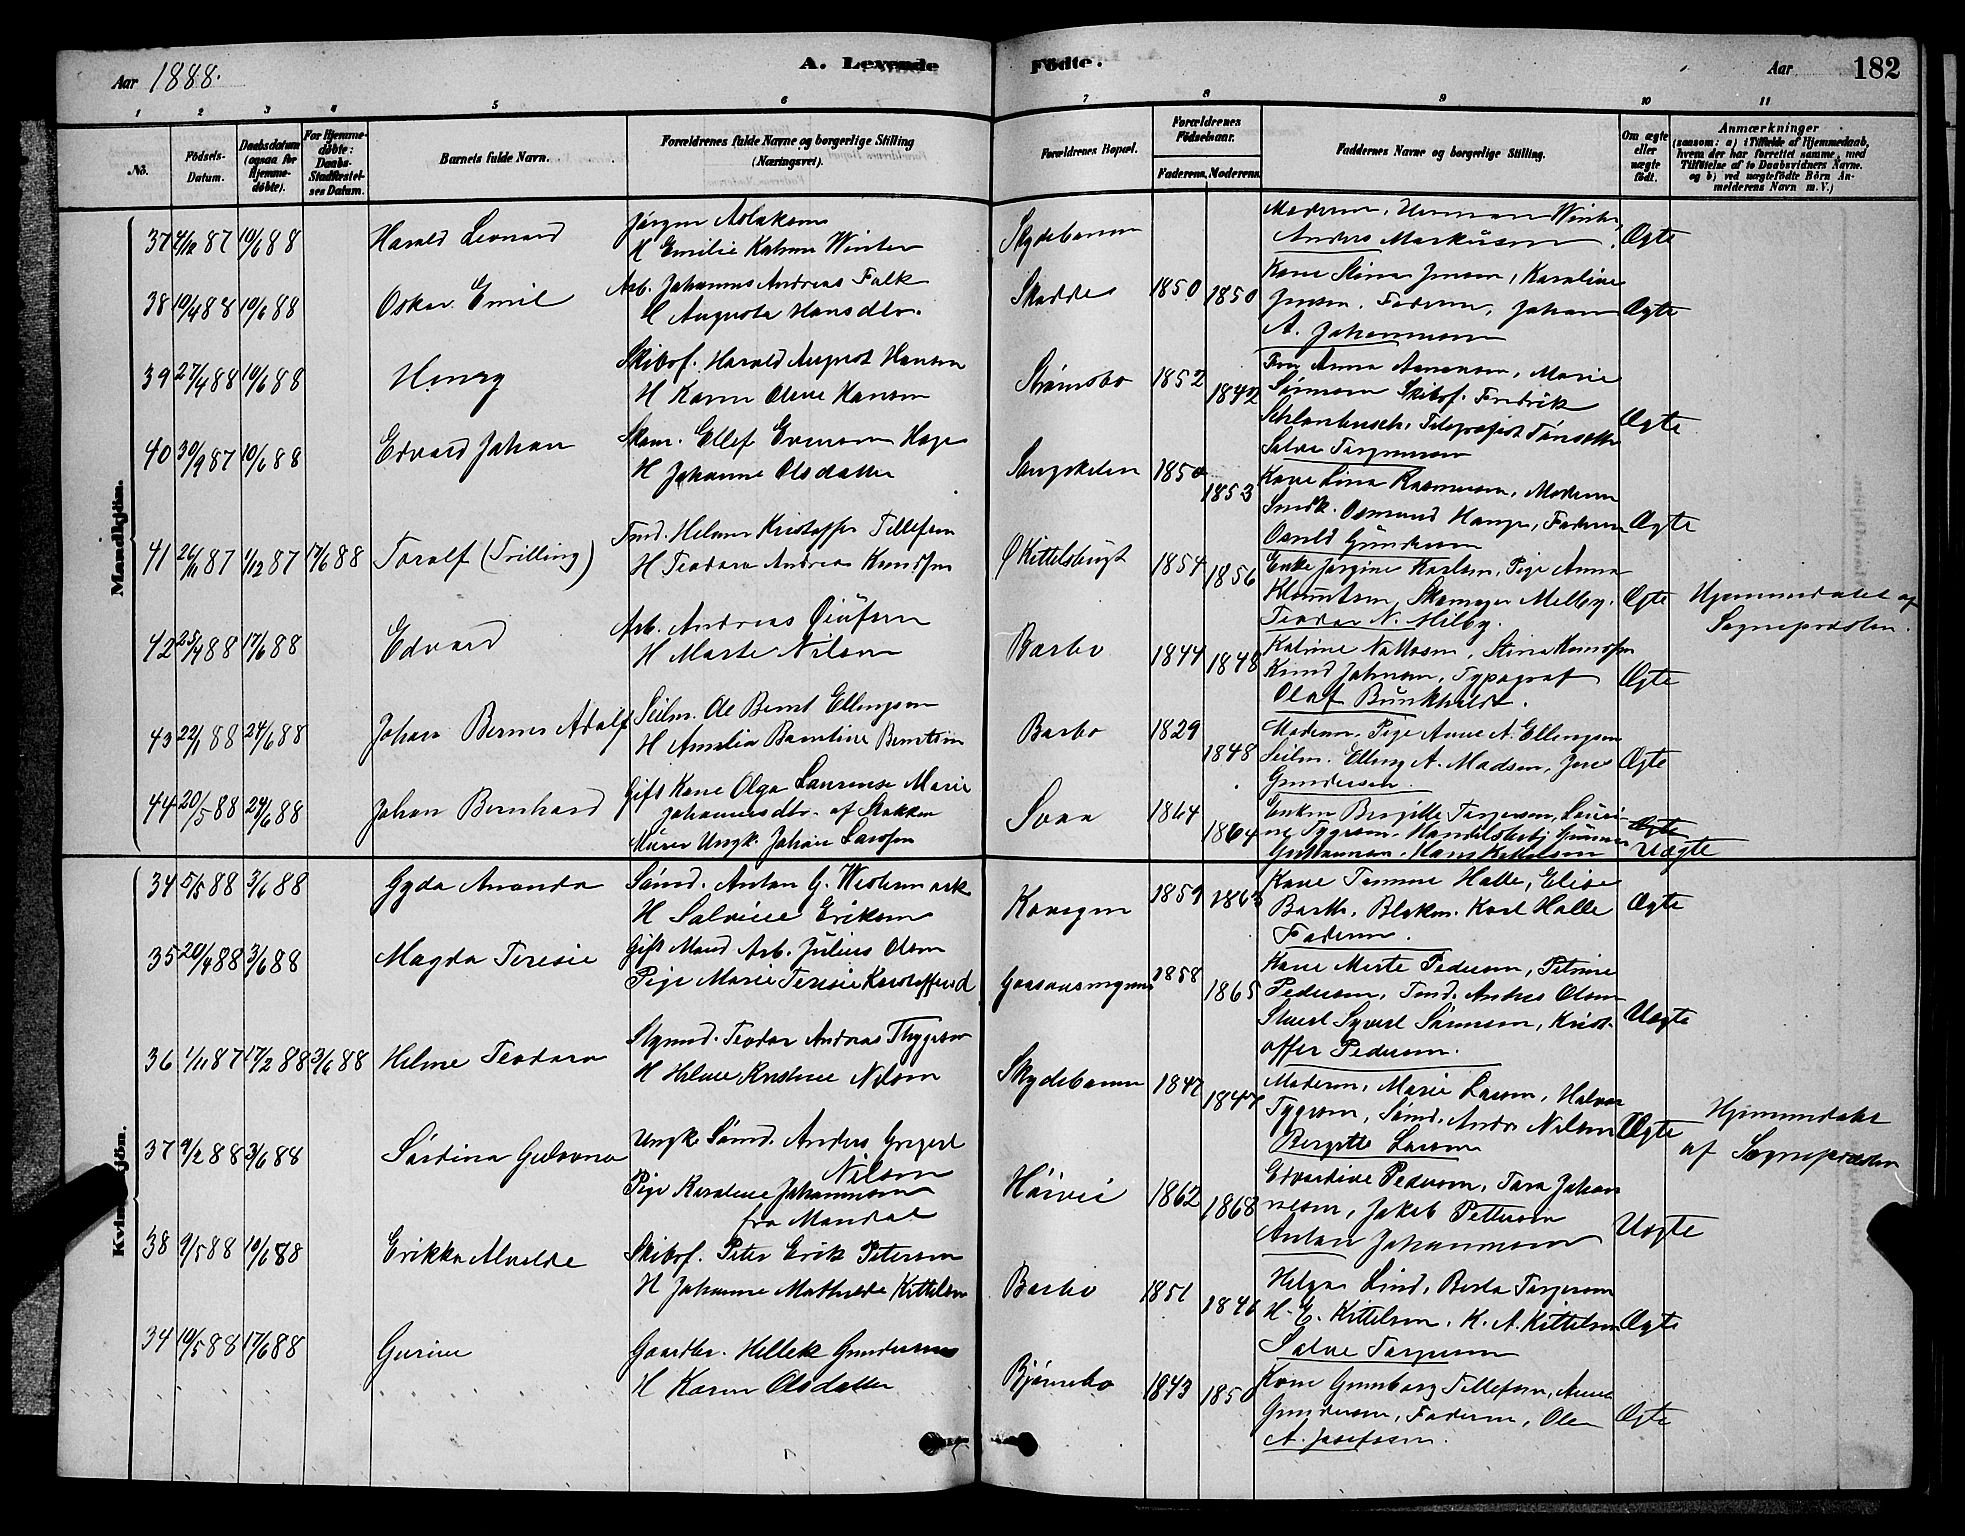 Aar 1888.
A. Levende
Fødte.
Aar
182
1 2 3 4 5 6 7 8 9 10 11
No.
Fødsels-Datum.
Daabsdatum (ogsaa for Hjemmedøbte).
For Hjemmedøbte: Daabs-Stadfæstelses Datum.
Barnets fulde Navn.
Forældrenes fulde Navne og borgerlige Stilling (Næringsvei).
Forældrenes Bopæl.
Forældrenes Fødselsaar.
Faderens. Moderens.
Faddernes Navne og borgerlige Stilling.
Om ægte eller uægte født.
Anmærkninger
(saasom: a) i Tilfælde af Hjemmedaab, hvem der har forrettet samme, med Tilføielse af to Daabsvidners Navne, og b) ved uægtefødte Børn Anmelderens Navn m. V.)
Mandkjøn.
37 4/12 87 10/6 88 Harald Leonard
Jørgen Aslaksen
H Emilie Katrine Winter
Skydebanen
Moderen, Herman Winter,
Anders Markusen
Ægte
38 10/4 88 10/6 88 Oskar Emil
Arb. Johannes Andreas Falk
H Augusta Hansdtr.
Skudde 1850 1850
Kone Stina Jensen, Karoline
Jensen, Faderen, Johan
A. Johannesen
Ægte
39 27/4 88 10/6 88 Henry
Skibsf. Harald August Hansen
H Karen Olene Hansen
Strømsbo 1852 1842
Fru Anna Asmensen, Marie
Sørensen Skibsf. Fredrik
Schlanbusch, Telegrafist Tønseth
Salve Torgersen
Ægte
40 30/9 87 10/6 88 Edvard Johan
Skom. Ellef Evensen Hage
H Johanne Olsdatter
Langskelen 1850 1853
Kone Lina Rasmusen, Moderen
Smdk. Osmund Hange, Faderen
Osvald Gundersen
Ægte
41 26/11 87 1/12 87 17/6 88 Toralf (Trilling)
Tmd. Helmer Kristoffer Tellefsen
H Teodora Andrea Knudsen
Ø Kittelsbugt 1854 1856
Enke Jørgine Karlsen, Pige Anna
Klemetsen, Skomager Melby,
Teodor N. Melby.
Ægte
Hjemmedøbt af
Sognepresten.
42 25/4 88 17/6 88 Edvard
Arb. Andreas Oiufsen
H Marte Nilsen
Barbo 1844 1848
Katrine Nattosen, Stina Knudsen
Knud Johnsen, Typograf
Olaf Bunkholdt.
Ægte
43 22/1 88 24/6 88 Johan Berner Adolf
Seilm. Ole Bernt Ellingsen
H Amalia Berntine Berntsen
Barbo 1829 1848
Moderen, Pige Anne A. Ellingsen
Seilm. Elling A. Madsen, Jens
Gundersen
Ægte
44 20/5 88 24/6 88 Johan Bernhard
Gift Kone Olga Laurense Marie
Johannesdtr. af Stokken
Murer Ungk. Johan Larsen
Svaa 1864 1864
Enken Birgitte Torgersen, Lauri-
ne Tygesen, Handelsbetj. Gunner
Guttormsen, Hans Kittelsen
Ægte
Uægte
Kvindekjøn.
34 5/5 88 3/6 88 Gyda Ananda
Sømd. Anton G. Westermark
H Salvine Eriksen
Kavegen 1859 1863
Kone Tomine Halle, Elise
Barth, Blokm. Karl Halle
Faderen.
Ægte
35 20/4 88 3/6 88 Magda Teresie
Gift Mand Arb. Julius Olsen
Pige Marie Teresie Kristoffersd
Gaasensmyren 1858 1865
Kone Merte Pedersen, Petrine
Pedersen, Tmd. Andres Olsen
Stuert Syvert Sørensen, Krist-
offer Pedersen.
Uægte
36 1/11 87 17/2 88 3/6 88 Helene Teodora
Stymd. Teodor Andreas Thygesen
H Helene Kristine Nilsen
Skydebanen 1847 1847
Moderen, Marie Larsen, Halvor
Tygesen, Sømd. Andr. Nilsen
Bergitte Larsen
Ægte
Hjemmedøbt
af Sognepresten
37 9/2 88 3/6 88 Sardina Gulovna
Ungk. Sømd. Anders Gregert
Nilsen
Pige Karoline Johannesen
fra Mandal
Høivei 1862 1868
Edvardine Pedersen, Tara Johan
nesen, Jakob Pettersen
Anton Johannesen
Uægte
38 9/5 88 10/6 88 Erikka Alvilde
Skibsf. Peter Erik Petersen
H Johanne Mathilde Kittelsen
Barbo 1851 1846
Helga Lind, Berta Torgersen
H. E. Kittelsen, K. A. Kittelsen
Salve Torgersen
Ægte
34 10/5 88 17/6 88 Gurine
Gaardbr. Hellek Gundersen
H Karen Olsdatter
Bjørnebo 1843 1850
Kone Gunborg Tellefsen, Anne
Gundersen, Faderen, Ole
A. Josefssen.
Ægte